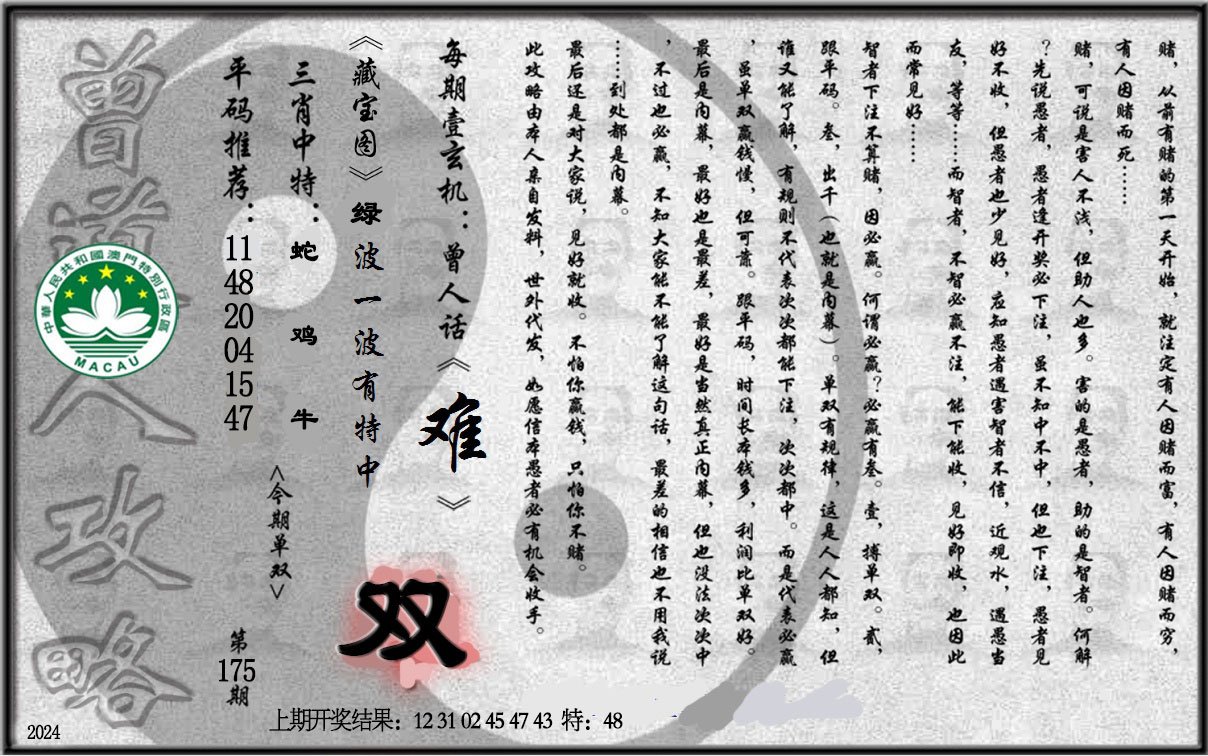 赌，从前有赌的第一天开始，就注定有人因赌而富，有人因赌而穷，
有人因赌而死……
赌，可说是害人不浅，但助人也多。害的是愚者，助的是智者。何解
？先说愚者，愚者逢开奖必下注，虽不知中不中，但也下注，愚者见
好不收，但愚者也少见好，应知愚者遇害智者不信，近观水，遇愚当
友，等等……而智者，不智必赢不注，能下能收，见好即收，也因此
而常见好……
智者下注不算赌，因必赢。何谓必赢？必赢有叁。壹，搏单双。贰，
跟平码。叁，出千（也就是内幕）。单双有规律，这是人人都知，但
谁又能了解，有规则不代表次次都能下注，次次都中。而是代表必赢
，虽单双赢钱慢，但可靠。跟平码，时间长本钱多，利润比单双好。
最后是内幕，最好也是最差，最好是当然真正内幕，但也没法次次中
，不过也必赢，不知大家能不能了解这句话，最差的相信也不用我说
……到处都是内幕。
最后还是对大家说，见好就收。不怕你赢钱，只怕你不赌。
此攻略由本人亲自发料，世外代发，如愿信本愚者必有机会收手。
每期壹玄机：曾人话《难》
《藏宝图》绿波一波有特中
双
三肖中特：蛇 鸡 牛
<今期单双>
平码推荐：11 48 20 04 15 47
第175期
曾道人攻略
中華人民共和國澳門特別行政區
MACAU
上期开奖结果：12 31 02 45 47 43 特：48
2024